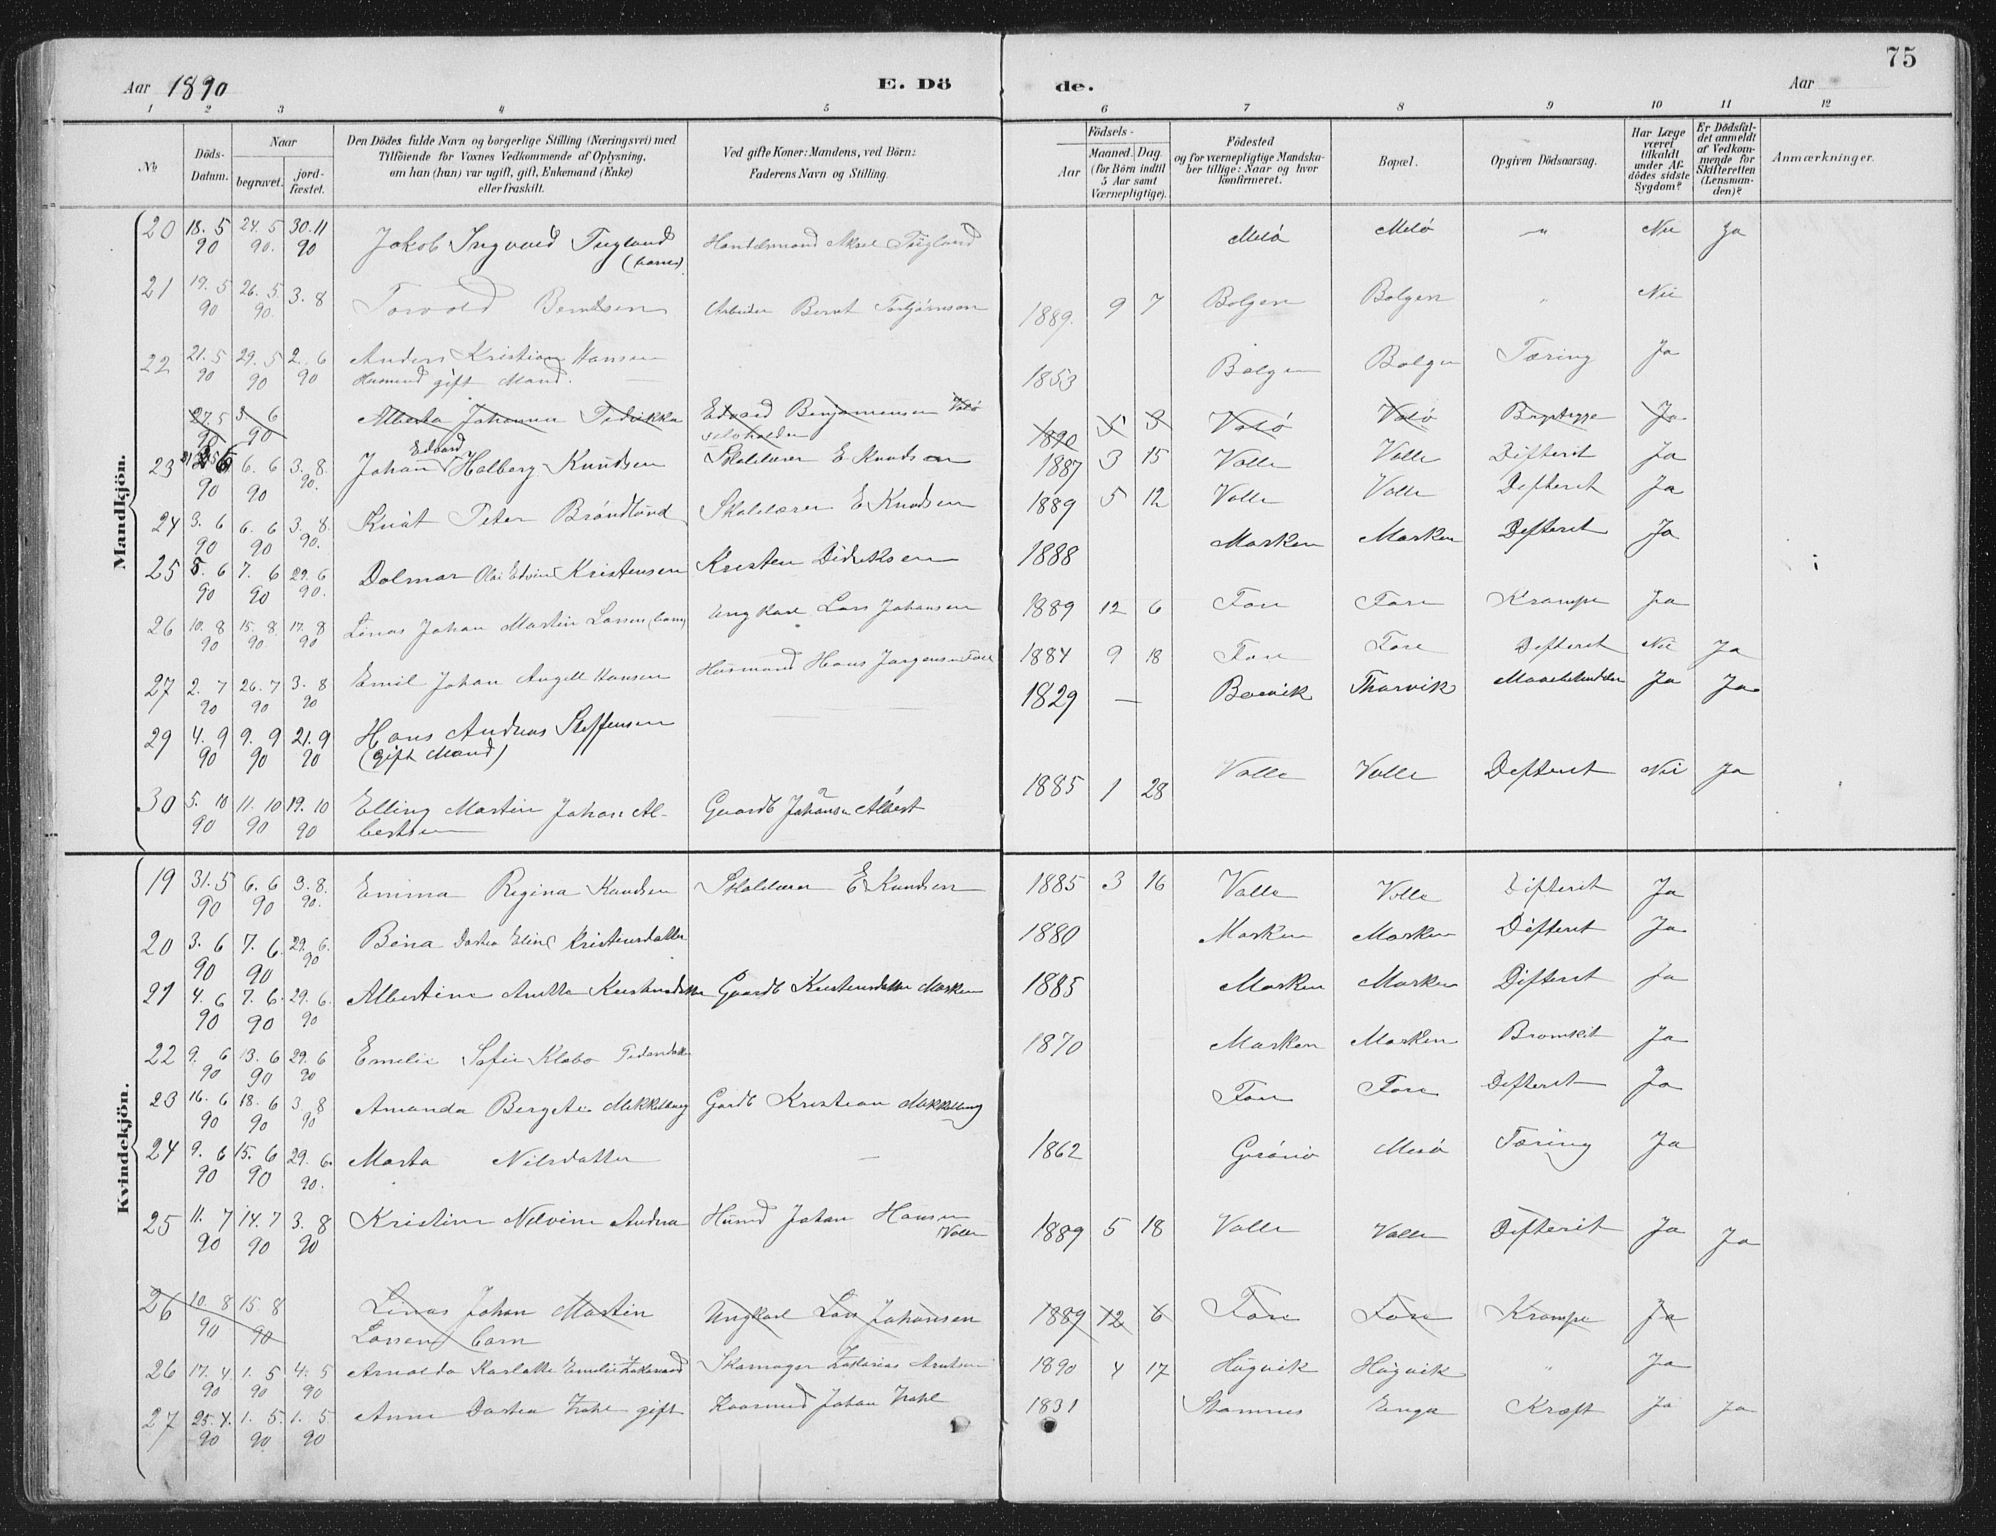 75
Aar 1890 E. Dö de. Aar
1 2 3 4 5 6 7 8 9 10 11 12
№ Döds-Datum. Naar begravet. jord-fæstet. Den Dödes fulde Navn og borgerlige Stilling (Næringsvei) med Tilföiende for Voxnes Vedkommende af Oplysning, om han (hun) var ugift, gift, Enkemand (Enke) eller fraskilt. Ved gifte Koner: Mandens, ved Börn: Faderens Navn og Stilling. Födsels- Aar Maaned. Dag (for Börn indtil 5 Aar samt Værnepligtige). Födested og for værnepligtige Mandskaber tillige: Naar og hvor konfirmeret. Bopæl. Opgiven Dödsaarsag. Har Læge været tilkaldt under Afdödes sidste Sygdom? Er Dödsfaldet anmeldt af Vedkommende for Skifteretten (Lensmanden)? Anmærkninger.
Mandkjön.
20 18.5 90 24.5 90. 30.11 90 Jakob Ingvald Fugland (barn) Handelsmand Aksel Fugland Melö Melö " Nei Ja
21 19.5 90 26.5 90. 3.8 Torvald Berntsen Arbeider Bernt Torbjörnsen 1889. 9 7 Bolgen Bolgen " Nei
22 21.5 90 29.5 90 2.6 90 Anders Kristian Hansen 1853 Bolgen Bolgen Tæring Ja
Husmd gift Mand.
27.5 90 3.6 90 Alberta Johanna Fredrikka Edvard Benjaminsen Valö 1890 5 3 Valö Valö Ja
selvholder
23 90 6.6 90 3.8. 90. Johan Edvard Holberg Knudsen Skolelærer E Knudsen 1887 3 15 Valle Valle Difterit Ja
24 3.6 90 6.6 90 3.8. 90. Knut Peter Bröndlund Skolelærer E Knudsen 1889 5 12 Valle Valle Difterit Ja
25 5.6 90 7.6 90 29.6 90. Dalmar Olai Edvin Kristensen Kristen Didriksen 1888 Masken Masken Difterit Ja
26 10.8 90 15.8 90. 17.8 90 Linas Johan Martin Larsen (barn) Ungkarl Lars Johansen 1889 12 6 Fore Fore Krampe Ja
27 2.7 90 26.7 90 3.8 90 Emil Johan Angell Hansen Husmand Hans Jørgensen Fore 1884 9 18 Fore Fore Difterit Nei Ja
29 4.9 90 9.9 90 21.9 90 Hans Andreas Steffensen 1829 — Tharvik Ja Ja
(gift Mand)
30 5.10 90 11.10 90 19.10 90 Elling Martin Johan Al- Gaardb Johansen Albert 1885 1 28 Valle Valle Difterit Nei Ja
bertsen
Kvindekjön.
19 31.5 90 6.6 90 3.8. 90. Emma Regina Knudsen Skolelærer E Knudsen 1885 3 16 Valle Valle Difterit Ja
20 3.6 90 7.6. 90 29.6. 90 Bina Dortea Eline Kristensdatter 1880 Masken Masken Difterit Ja
21 4.6 90 7.6. 90 29.6. 90 Albertine Anikka Kristensdatter Gaardb Kristensdatter Masken 1885 Masken Masken Difterit Ja
22 9.6 90 13.6 90 29.6 90 Emelie Sofie Klabo 1870 Masken Masken Bronkit Ja
23 16.6 90 18.6 90 3.8 90 Amanda Bergete Mikkelborg Gardb Kristian Mikkelborg Fore Fore Difterit Ja
24 9.6 90 15.6 90 29.6. 90. Marta Nilsdatter — 1862 Grönö Mesö Tæring Ja
25 11.7 90 14.7 90 3.8 90 Kristine Nelvine Andrea Husmd Johan Hansen 1889 5 18 Valle Valle Difterit Ja Ja
Valle
26 10.8 90 15.8 90 Linas Johan Martin Ungkarl Lars Johansen 1889 12 6 Fore Fore Krampe Ja
Larsen barn
26 17.4 90 1.5 90 4.5 90 Arnolda Karlotte Emelie Zakariasd Skomager Zakarias Arntsen 1890 4 17 Hugvik Hugvik " Ja
27 25.4. 90 1.5. 90. 1.5 90 Anne Dortea Zahl gift Kaarmd Johan Zahl 1831 Stamnes Enga Kræft Ja Ja